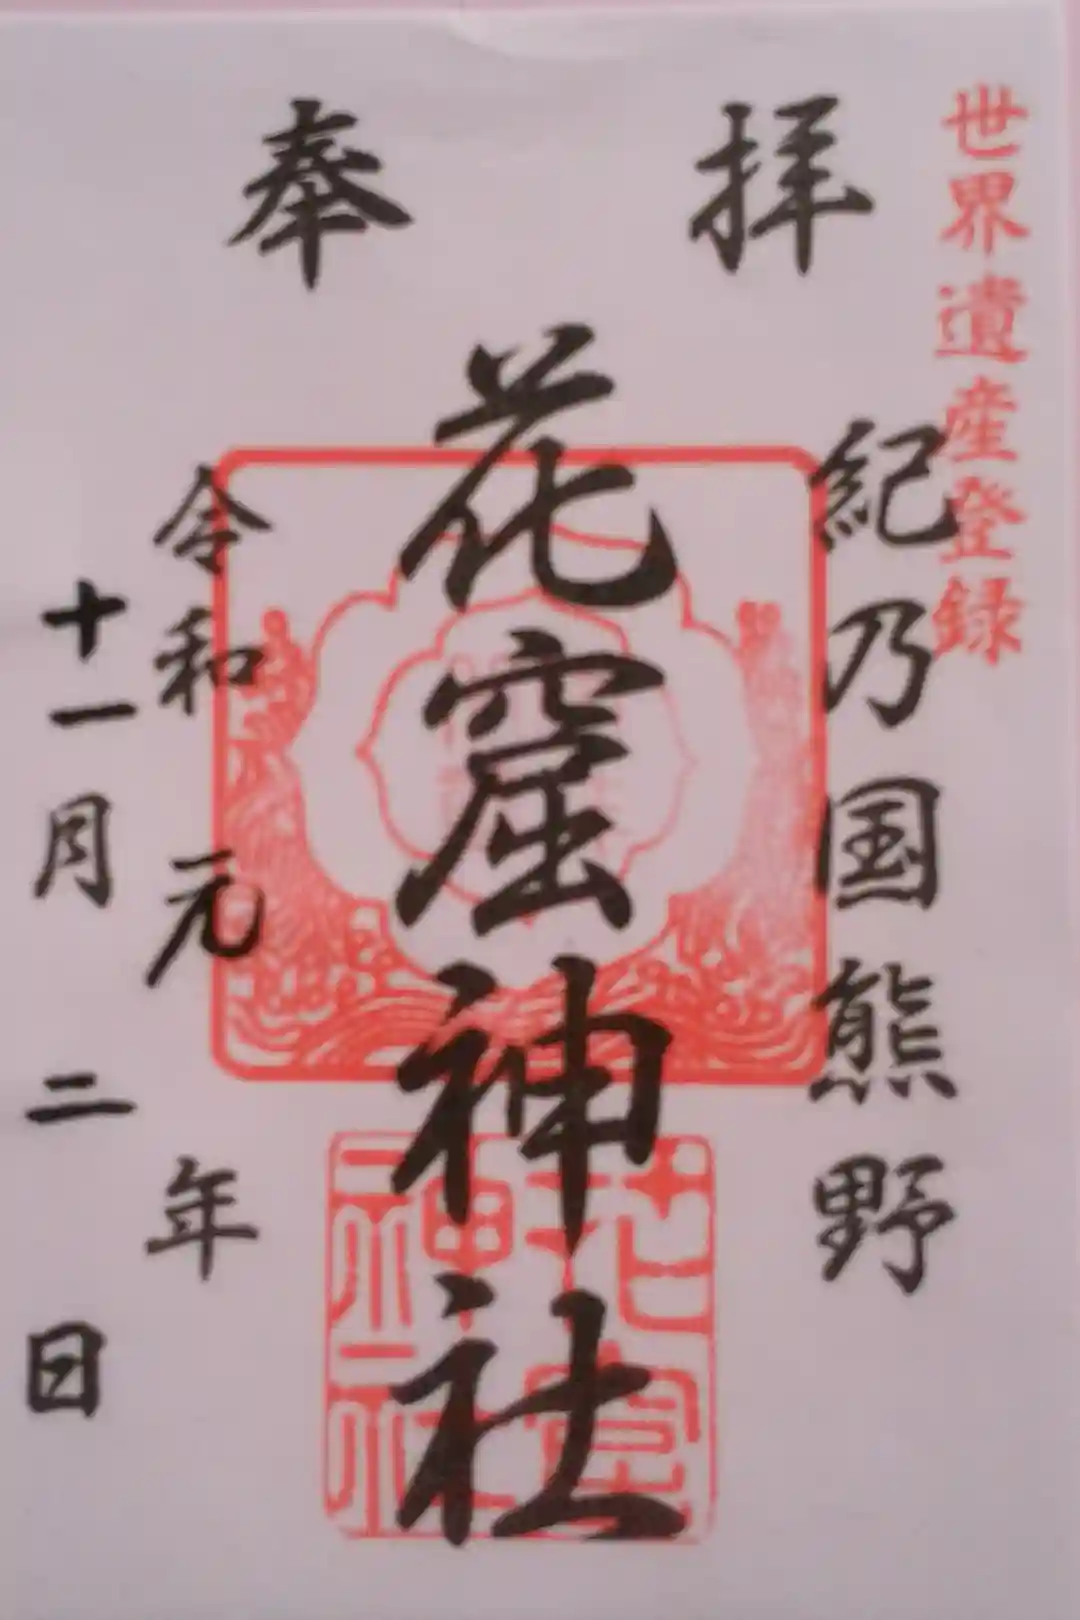 世界遺産登録
奉拝
紀乃国熊野
花窟神社
令和元年
十一月二日
花窟
神社